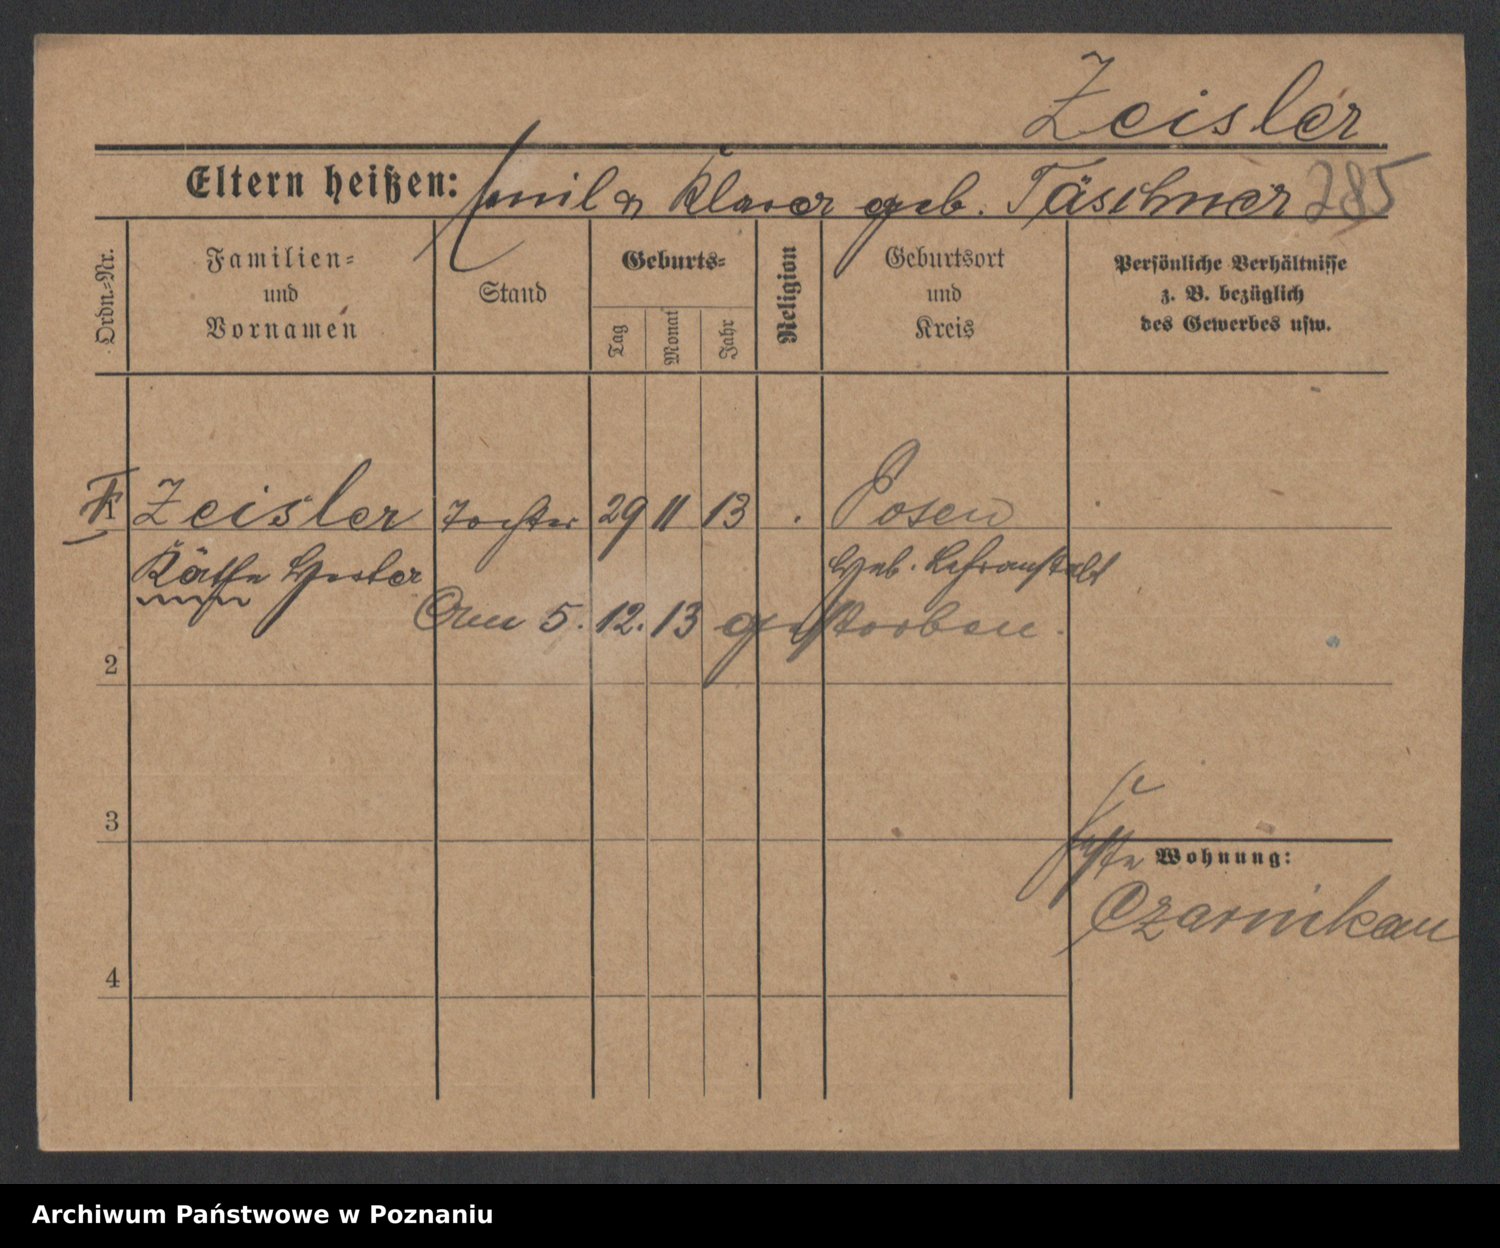 Zeisler
Eltern heißen: Emil & Klara geb. Täschner 285
Ordn.-Nr.
Familien-
und
Vornamen
Stand
Geburts-
Tag
Monat
Jahr
Religion
Geburtsort
und
Kreis
Persönliche Verhältnisse
z. B. bezüglich
des Gewerbes usw.
1 Zeisler Tochter 29 11 13 Posen
Käthe Hester Heb. Lehranstalt
Am 5. 12. 13 gestorben.
2
3
Wohnung:
Czarnikau
4
Archiwum Państwowe w Poznaniu